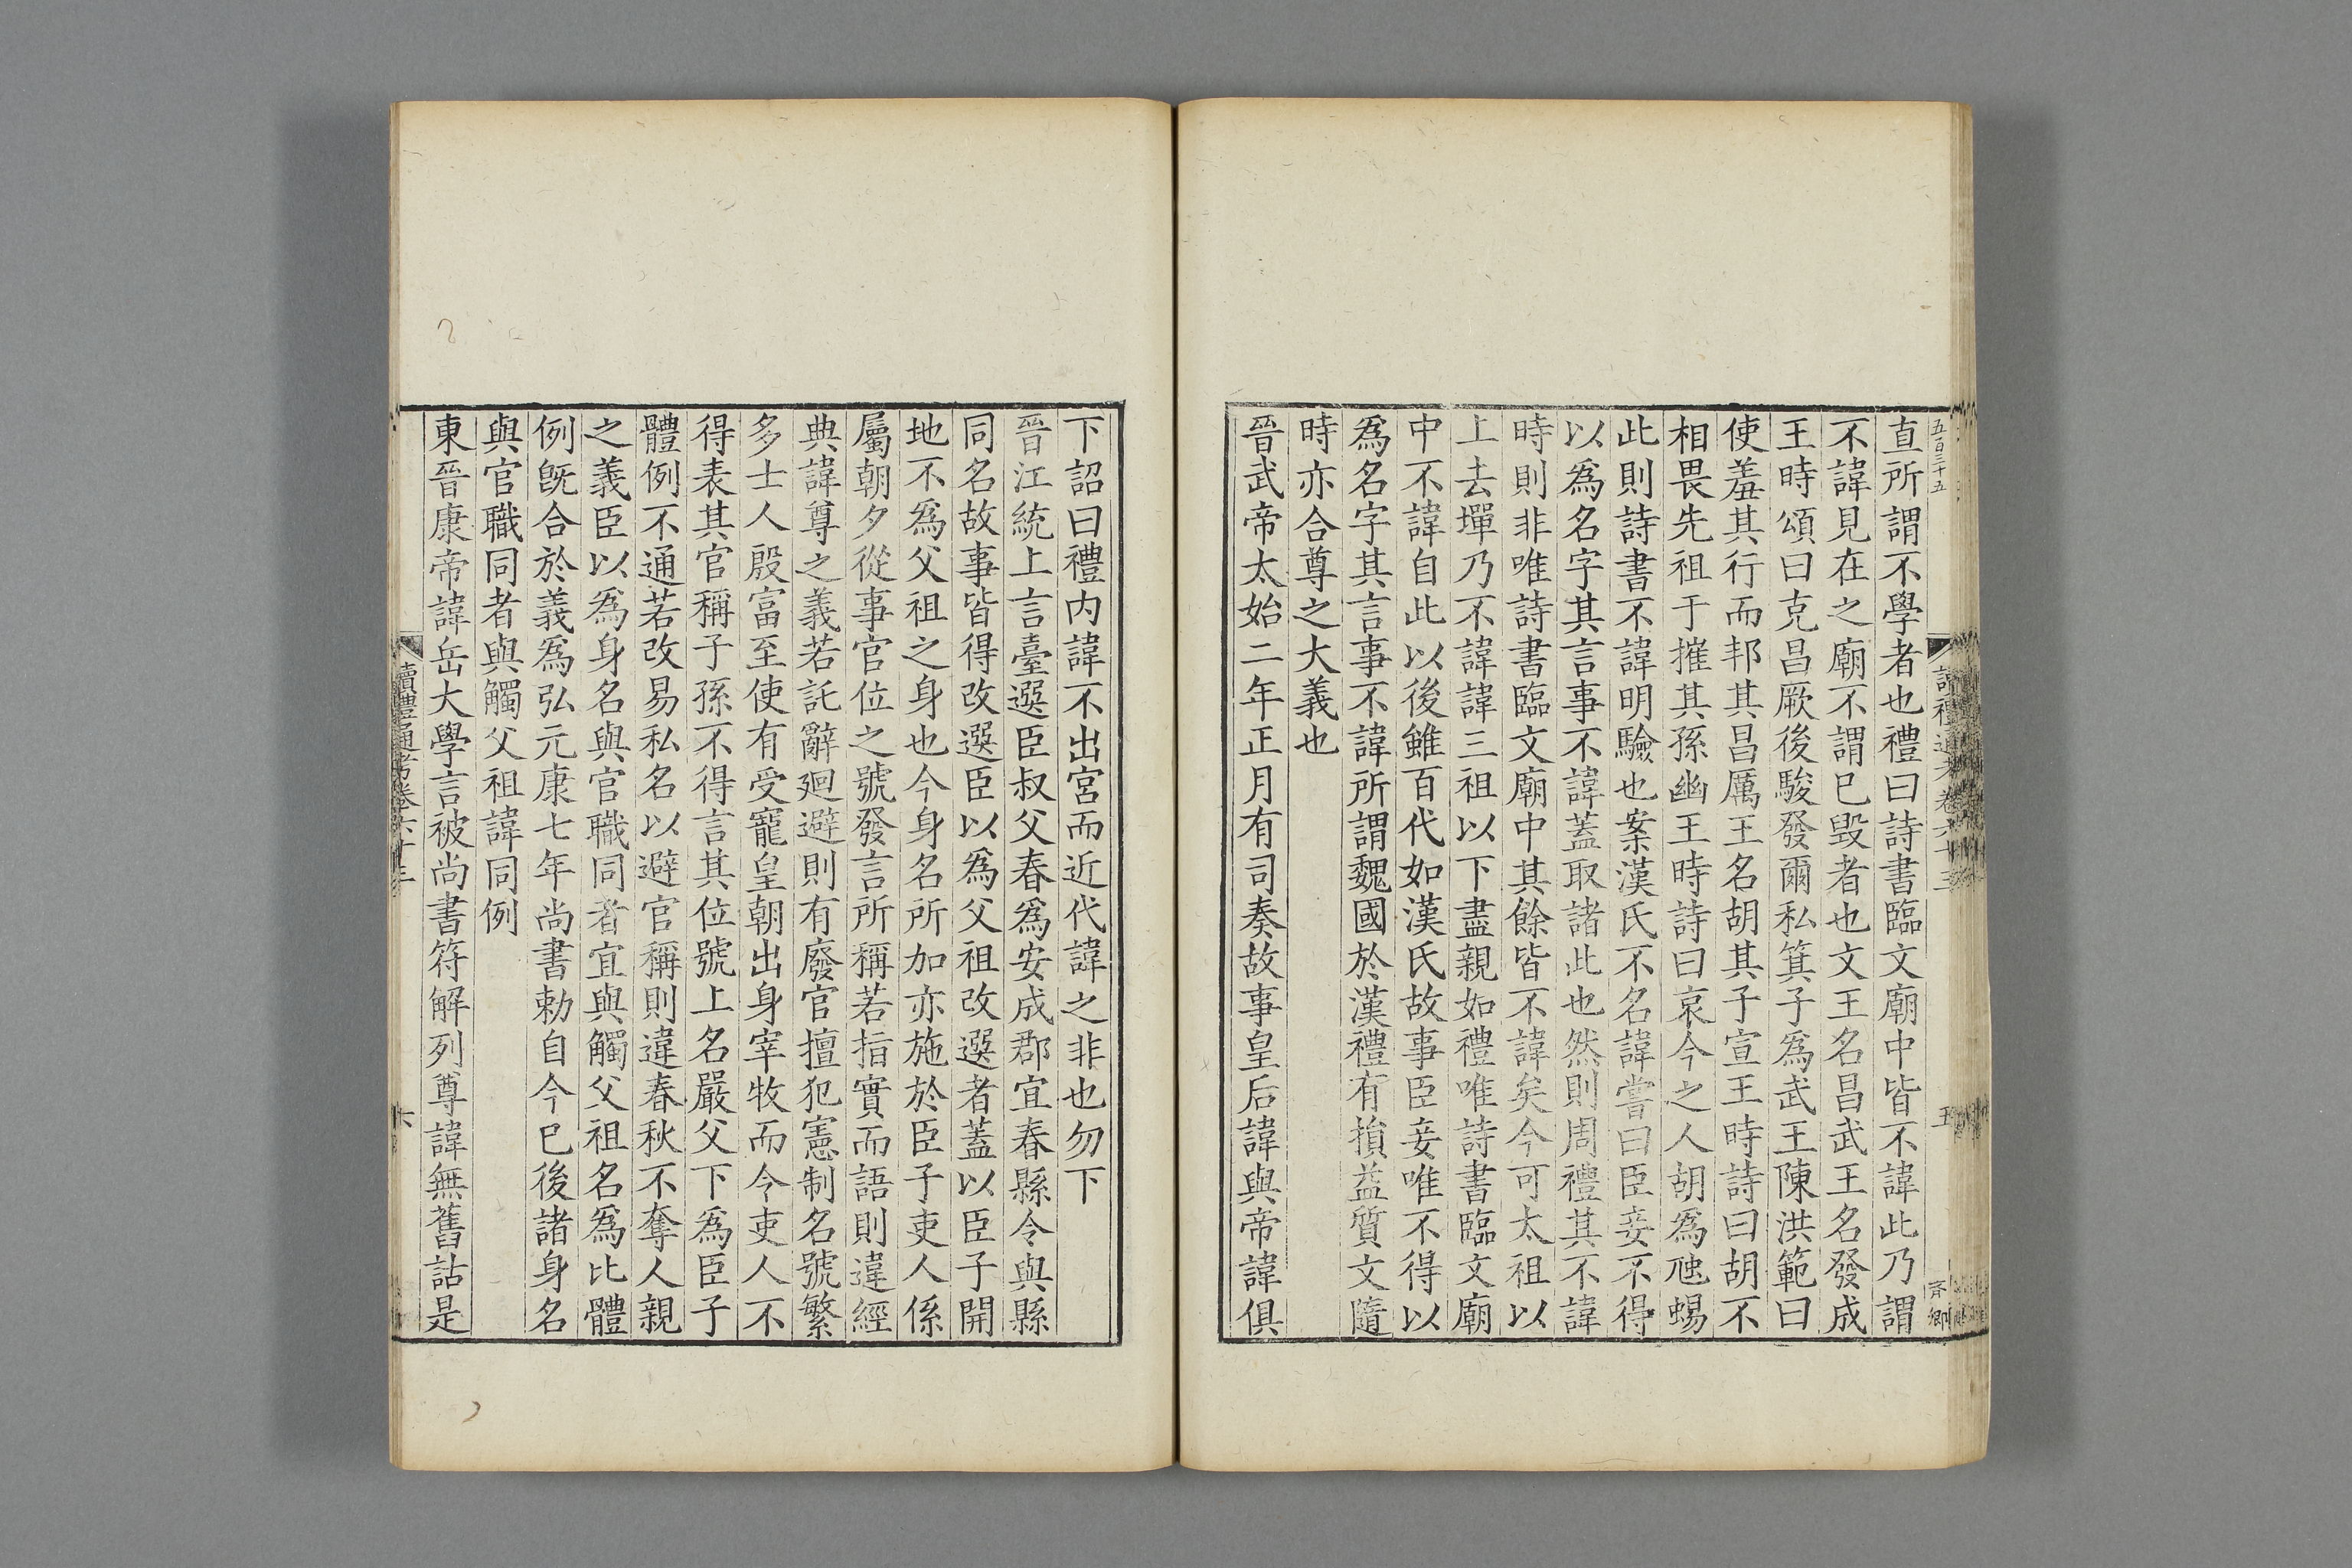 五百三十五
讀禮通考卷六十三
五
齊卿
直所謂不學者也禮曰詩書臨文廟中皆不諱此乃謂
不諱見在之廟不謂已毀者也文王名昌武王名發成
王時頌曰克昌厥後駿發爾私箕子為武王陳洪範曰
使羞其行而邦其昌厲王名胡其子宣王時詩曰胡不
相畏先祖于摧其孫幽王時詩曰哀今之人胡為虺蜴
此則詩書不諱明驗也案漢氏不名諱嘗曰臣妾不得
以為名字其言事不諱蓋取諸此也然則周禮其不諱
時則非唯詩書臨文廟中其餘皆不諱矣今可太祖以
上去墠乃不諱諱三祖以下盡親如禮唯詩書臨文廟
中不諱自此以後雖百代如漢氏故事臣妾唯不得以
為名字其言事不諱所謂魏國於漢禮有損益質文隨
時亦合尊之大義也
晉武帝太始二年正月有司奏故事皇后諱與帝諱俱
下詔曰禮內諱不出宮而近代諱之非也勿下
晉江統上言臺選臣叔父春為安成郡宜春縣令與縣
同名故事皆得改選臣以為父祖改選者蓋以臣子開
地不為父祖之身也今身名所加亦施於臣子吏人係
屬朝夕從事官位之號發言所稱若指實而語則違經
典諱尊之義若託辭廻避則有廢官擅犯憲制名號繁
多士人殷富至使有受寵皇朝出身宰牧而令吏人不
得表其官稱子孫不得言其位號上名嚴父下為臣子
體例不通若改易私名以避官稱則違春秋不奪人親
之義臣以為身名與官職同者宜與觸父祖名為比體
例既合於義為弘元康七年尚書勅自今已後諸身名
與官職同者與觸父祖諱同例
東晉康帝諱岳大學言被尚書符解列尊諱無舊詁是
讀禮通考卷六十三
六